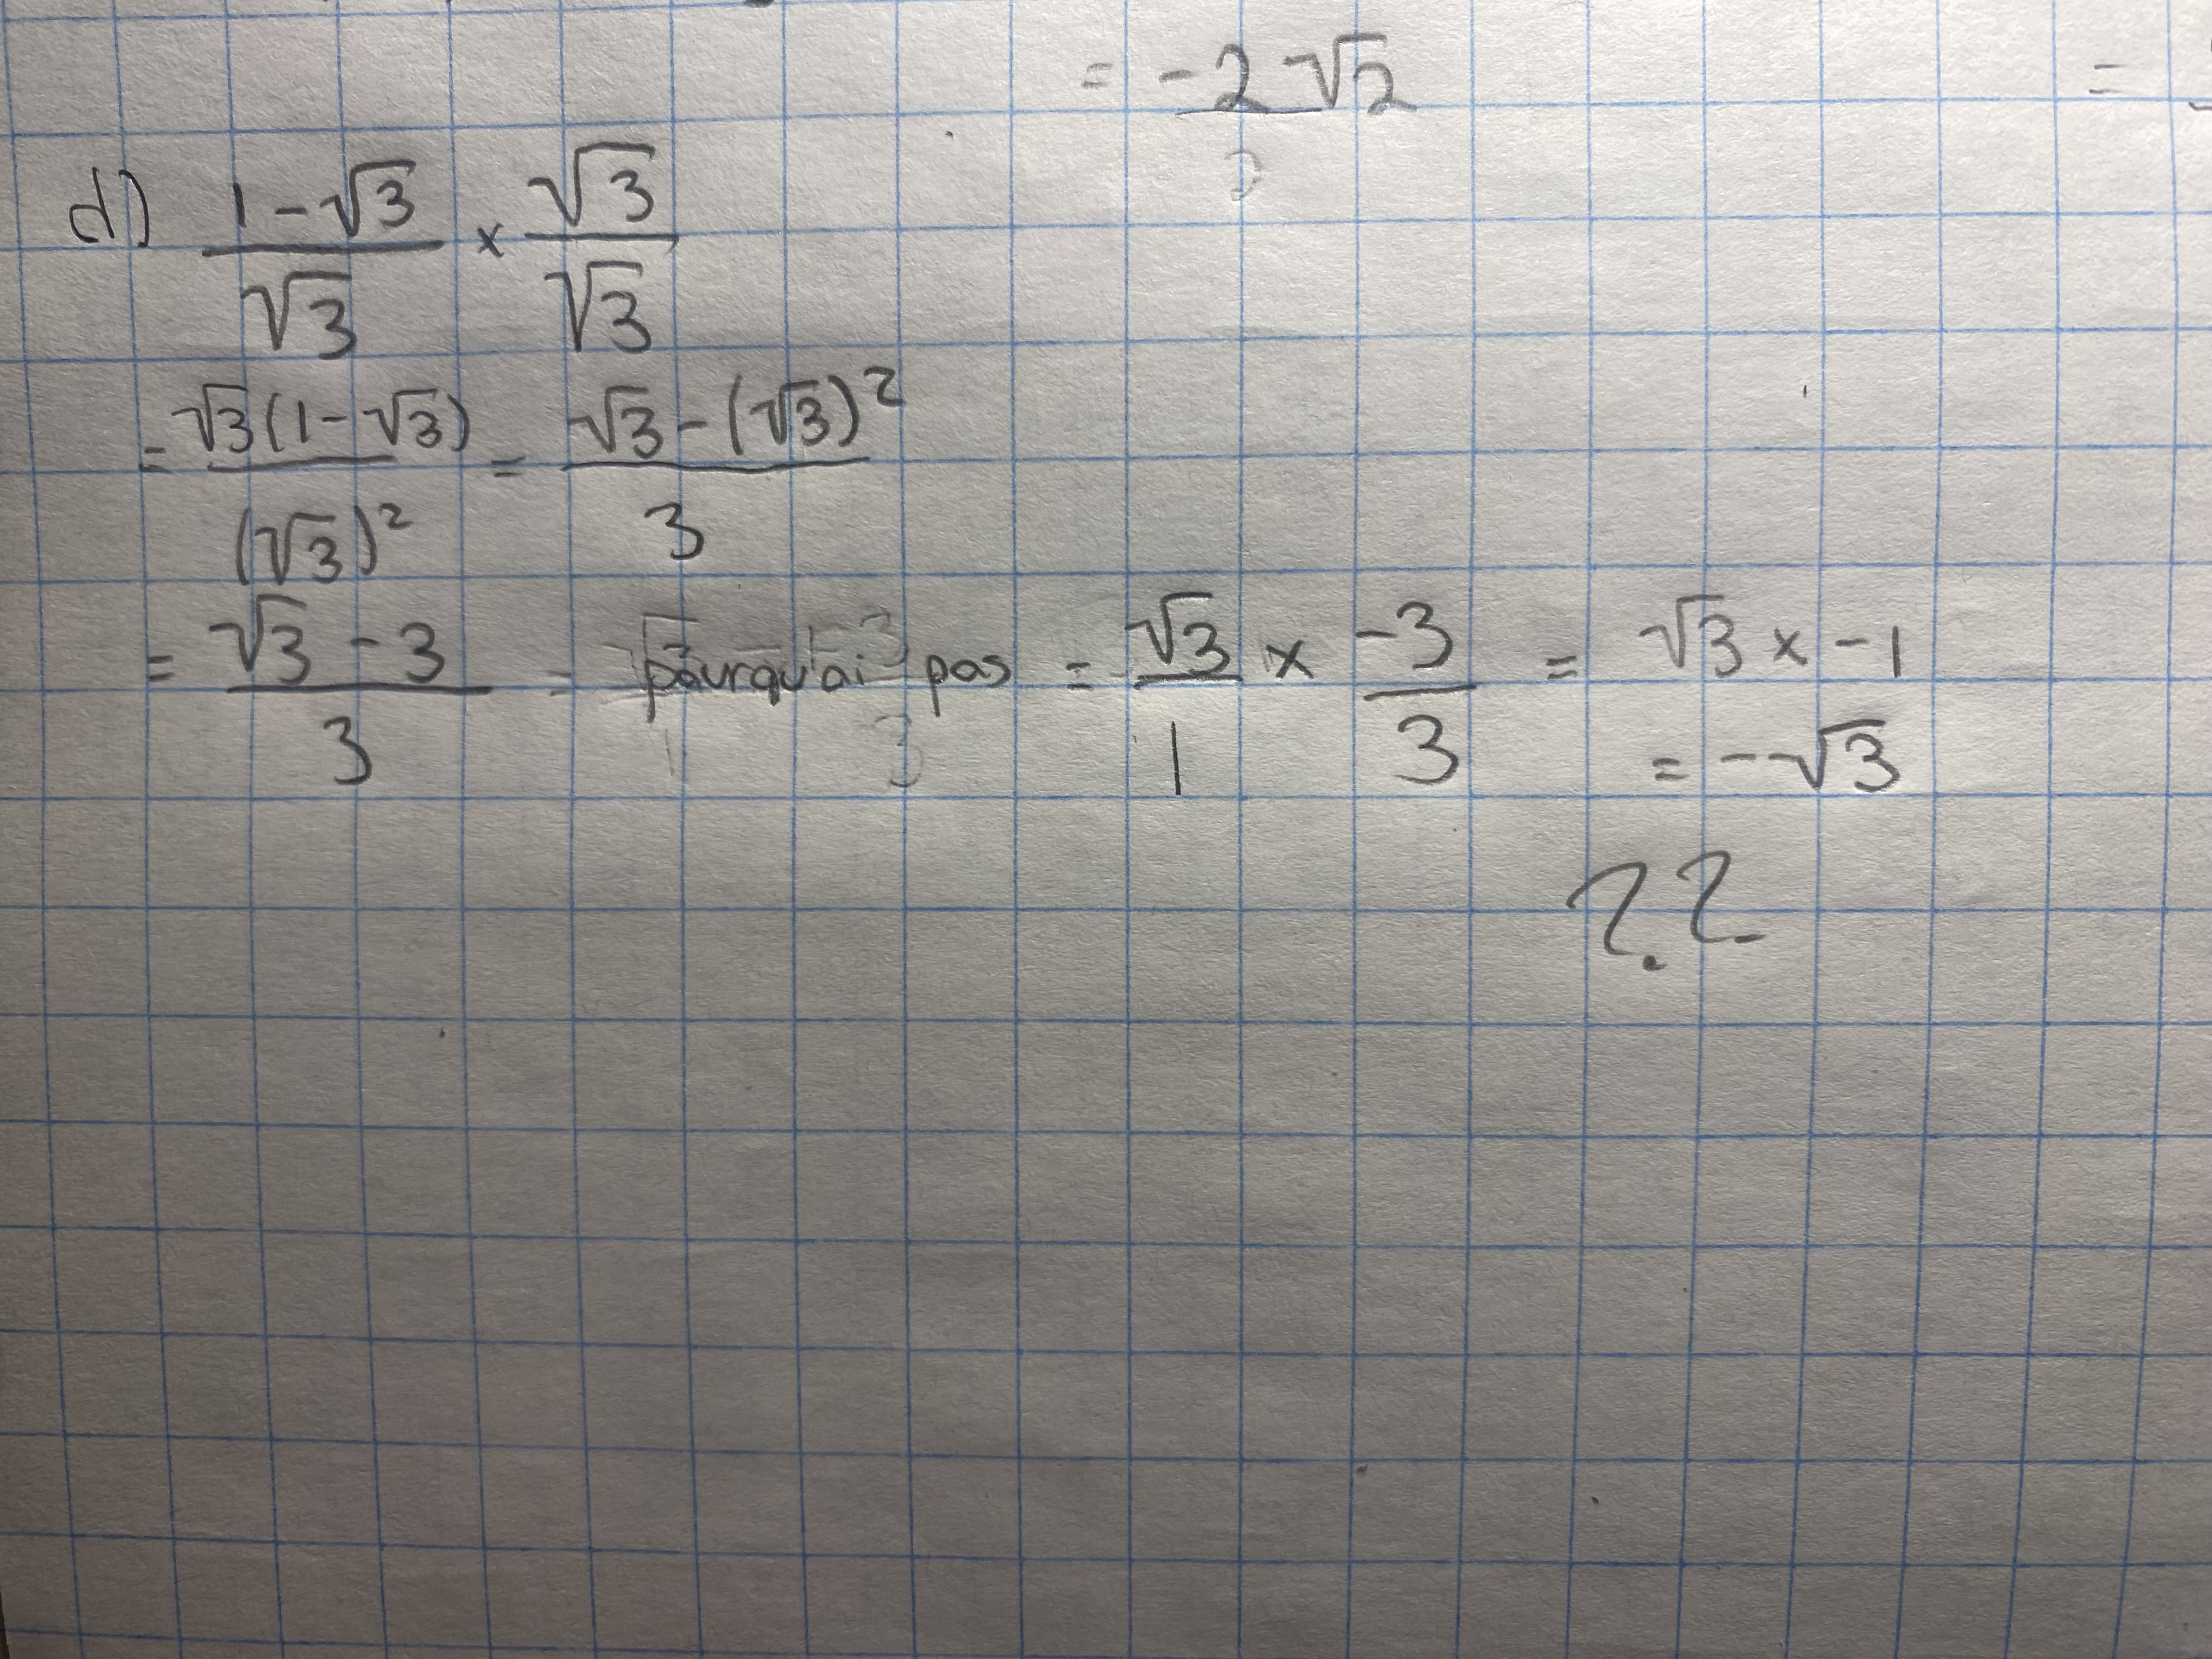 = -2√2
=
d) 1-√3 / √3 × √3 / √3
= √3(1-√3) / (√3)² = √3-(√3)² / 3
= √3 - 3 / 3 = pourquoi pas = √3 / 1 × -3 / 3 = √3 × -1
= -√3
??